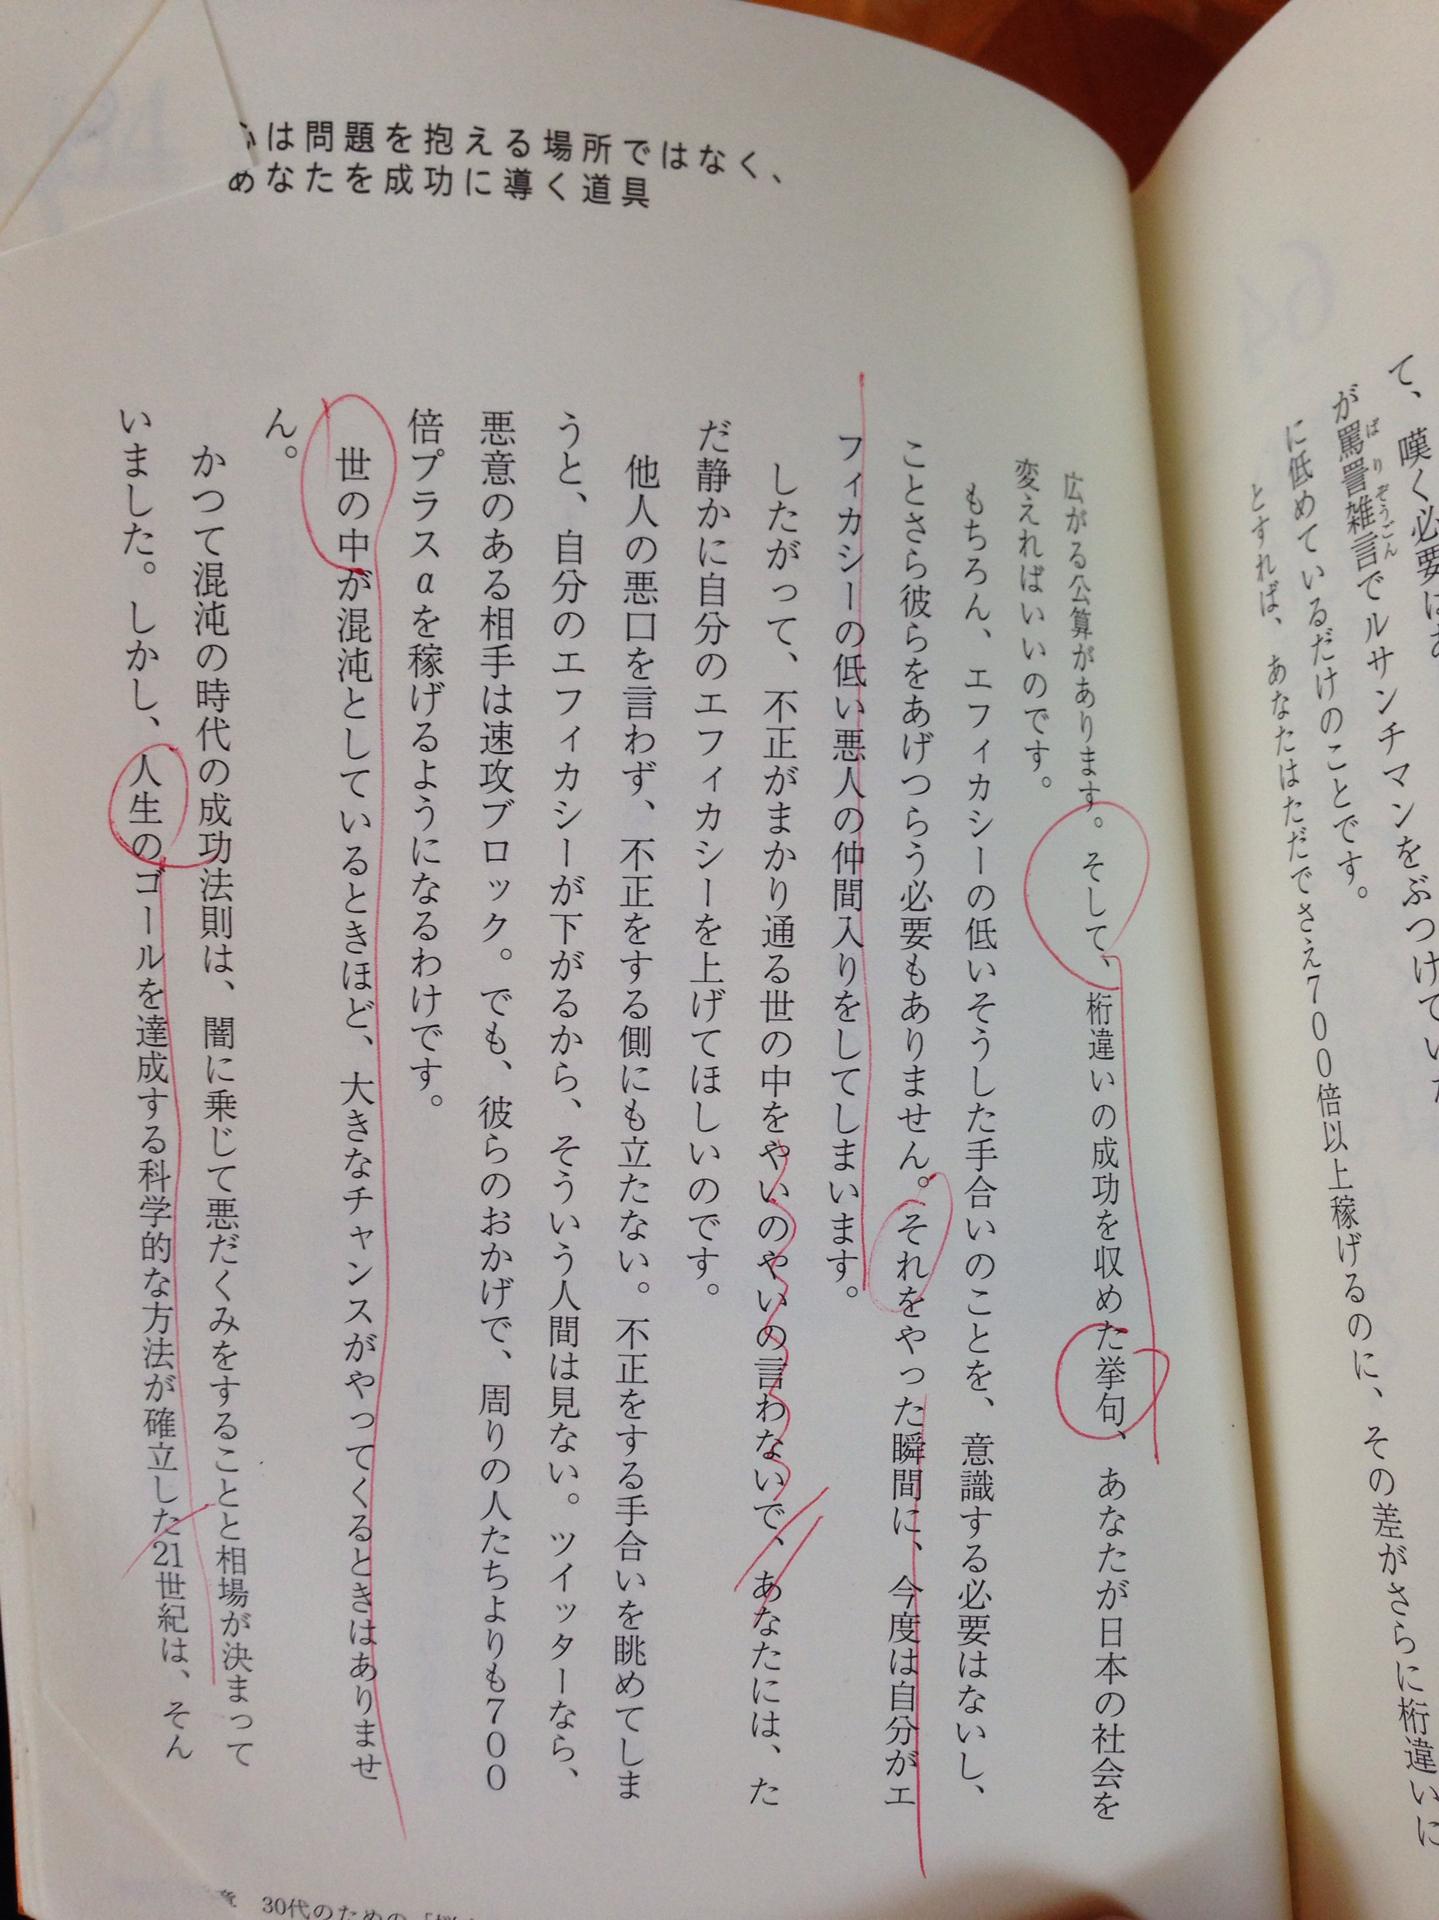 は問題を抱える場所ではなく、
めなたを成功に導く道具
て、嘆く必要は
が罵詈雑言でルサンチマンをぶつけていた
ばりぞうごん
に低めているだけのことです。
とすれば、あなたはただでさえ700倍以上稼げるのに、その差がさらに桁違いに
広がる公算があります。そして、桁違いの成功を収めた挙句、あなたが日本の社会を
変えればいいのです。
もちろん、エフィカシーの低いそうした手合いのことを、意識する必要はないし、
ことさら彼らをあげつらう必要もありません。それをやった瞬間に、今度は自分がエ
フィカシーの低い悪人の仲間入りをしてしまいます。
したがって、不正がまかり通る世の中をやいのやいの言わないで、あなたには、た
だ静かに自分のエフィカシーを上げてほしいのです。
他人の悪口を言わず、不正をする側にも立たない。不正をする手合いを眺めてしま
うと、自分のエフィカシーが下がるから、そういう人間は見ない。ツイッターなら、
悪意のある相手は速攻ブロック。でも、彼らのおかげで、周りの人たちよりも700
倍プラスαを稼げるようになるわけです。
世の中が混沌としているときほど、大きなチャンスがやってくるときはありませ
ん。
かつて混沌の時代の成功法則は、闇に乗じて悪だくみをすることと相場が決まって
いました。しかし、人生のゴールを達成する科学的な方法が確立した21世紀は、そん
章 30代のための「